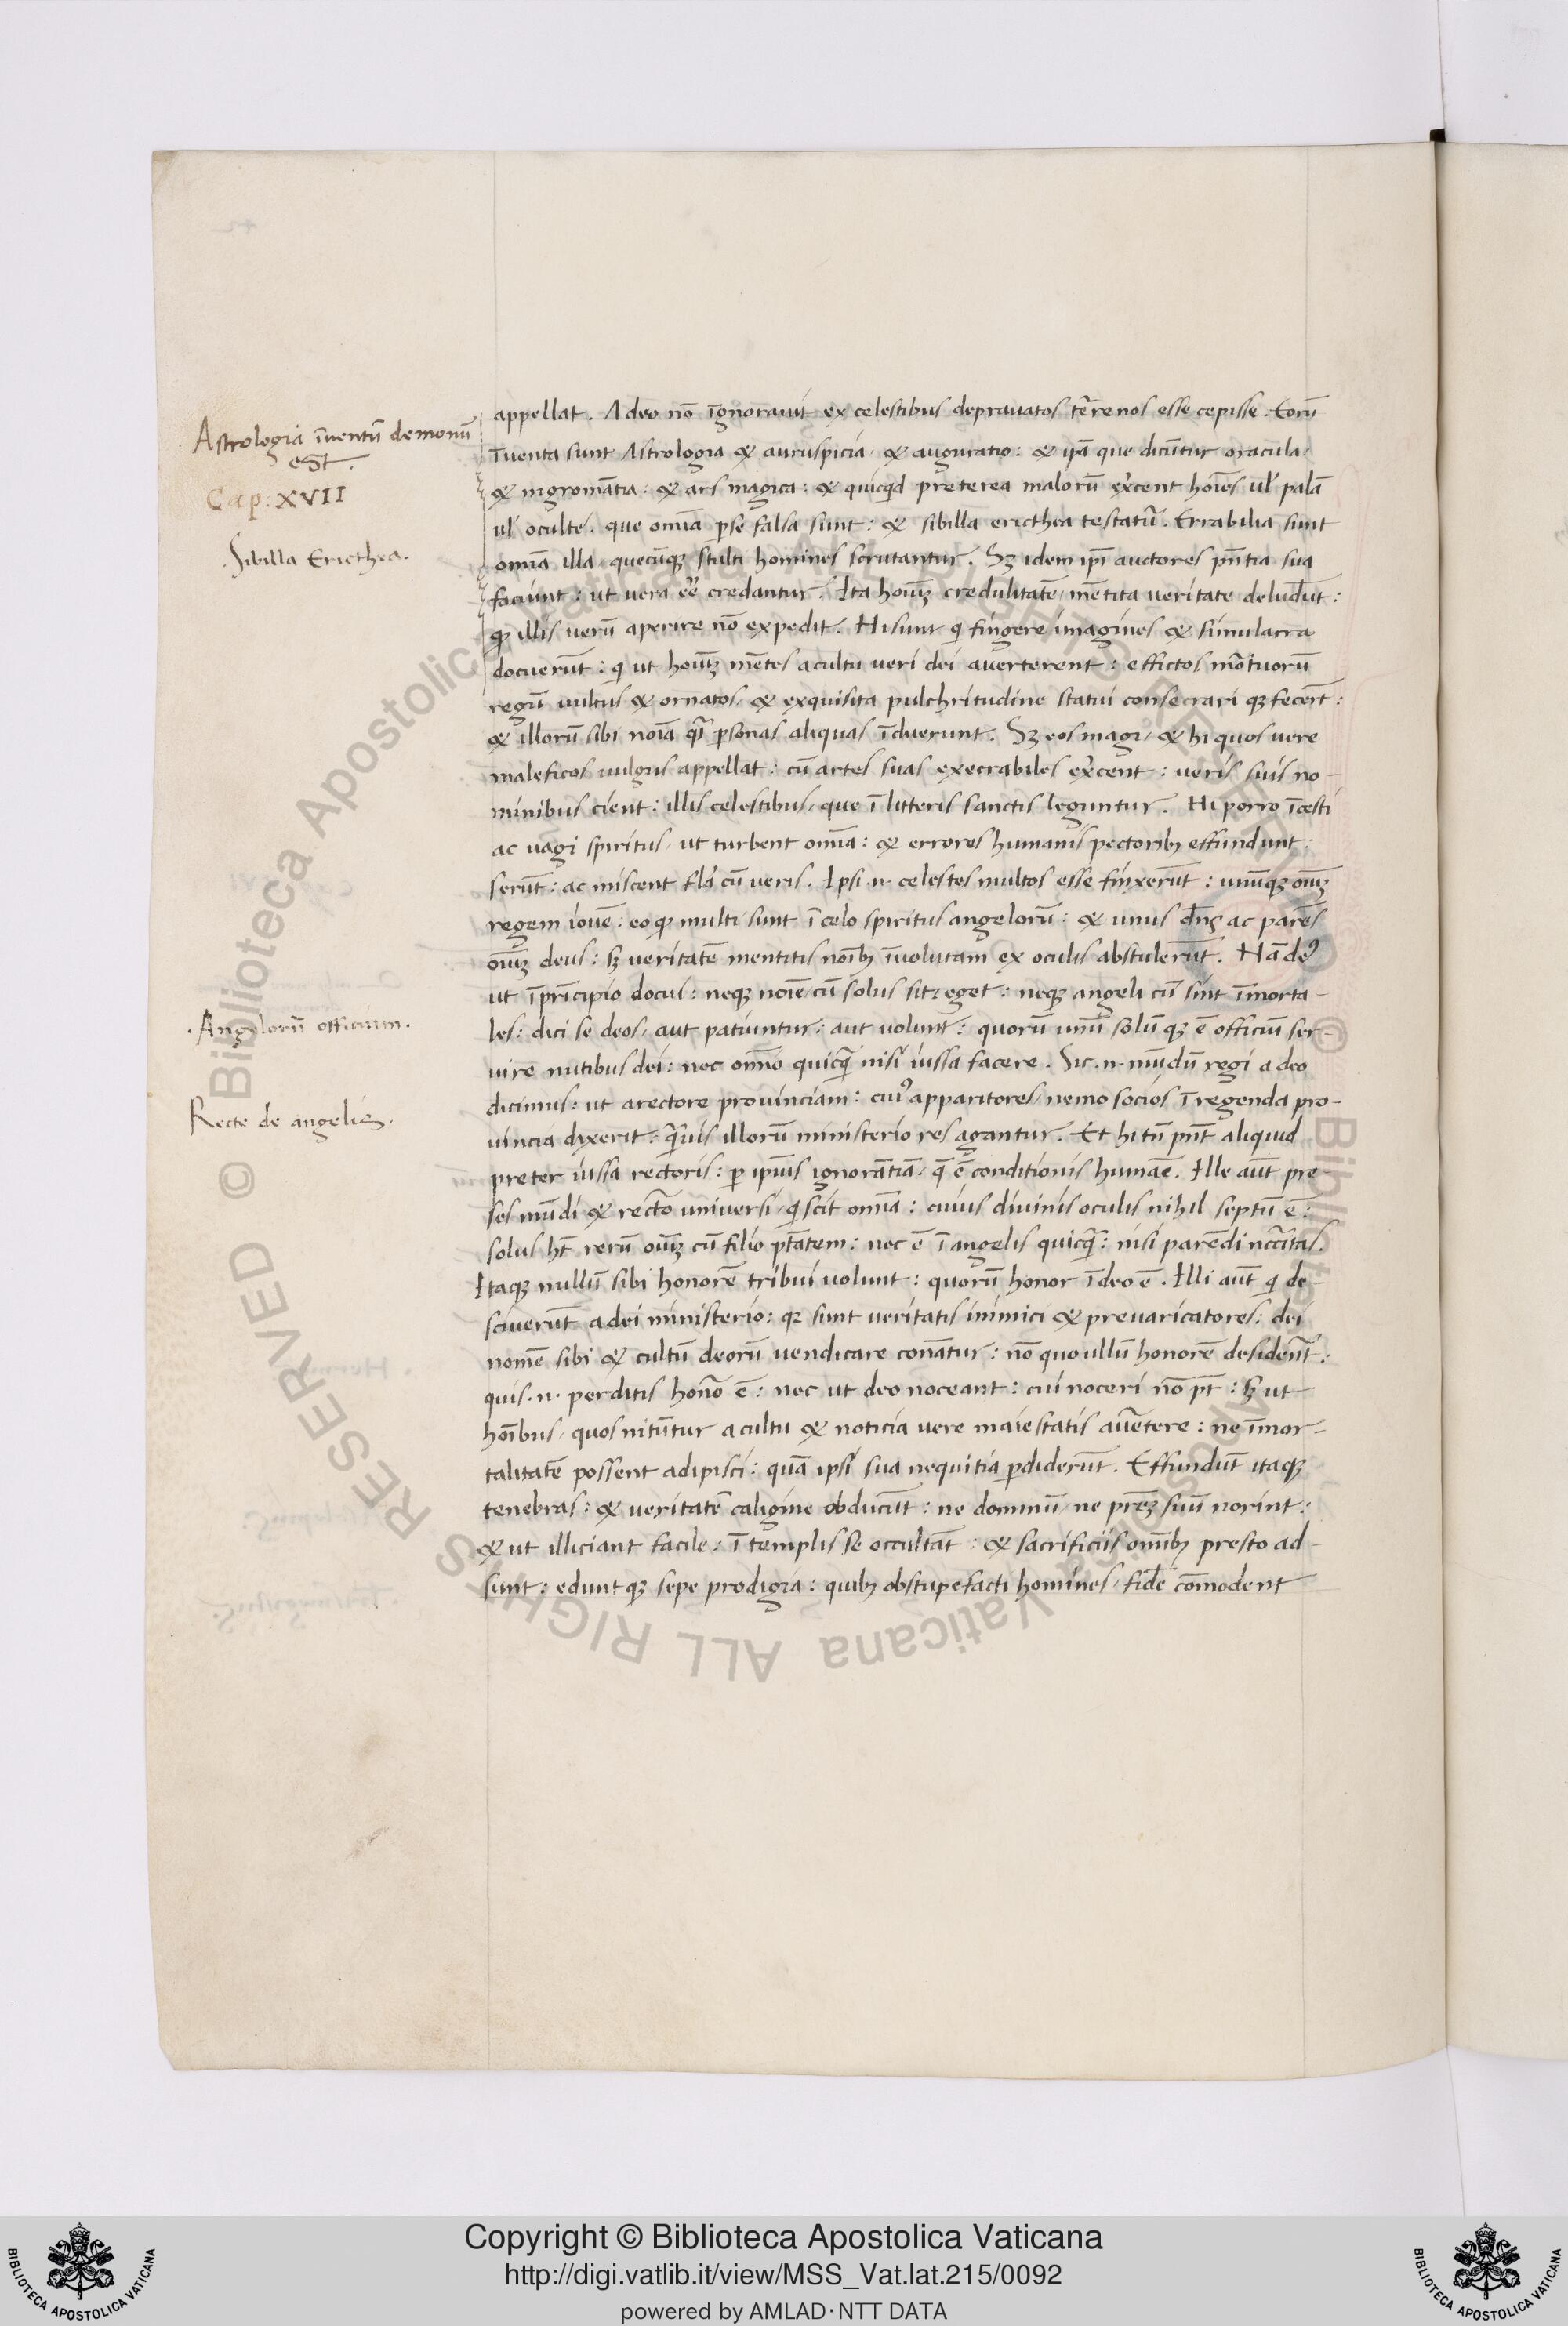 Astrologia īventū demonū
est.
Cap: XVII
Sibilla Ericthea.
.Angelorū officium.
Recte de angelis.
appellat. Adeo nō īgnorauit ex celestibus deprauatos tērenos esse cepisse. Eorū
īventa sunt Astrologia & auruspicia, & auguratio: & ip̄a que dicūtur oracula,
& nigromātia: & ars magica: & quicq̄d preterea malorū exc̄ent hoīes ul' palā
ul' oculte. que omīa p̱se falsa sunt: & sibilla ericthea testatur̄. Errabilia sunt
omīa illa quecūqꝫ stulti homines scrutantur. Sꝫ idem ip̄i auctores pn̄tia sua
faciunt: ut vera eē credantur. Ita hoīuꝫ credulitatē mētita veritate deludūt:
qꝫ illis verū aperire nō expedit. Hi sunt q̄ fingere imagines & simulacra
docuerūt: q̄ ut hoīuꝫ mētes a cultu veri dei averterent: effictos mōtuorū
regū vultus & ornatos, & exquisita pulchritudine statui consecrari qꝫ fecēt:
& illorū sibi noīa q̄i p̱sonas aliquas īduerunt. Sꝫ eos magi, & hi quos vere
maleficos vulgus appellat: cū artes suas execrabiles exc̄ent: veris suis no-
minibus cient: illis celestibus, que ī litteris sanctis leguntur. Hi porro īcesti
ac vagi spiritus, ut turbent omīa: & errores humanis pectoribꝫ effundunt:
serūt: ac miscent fl̄a cū veris. Ipsi .n. celestes multos esse finxerūt: unūqꝫ oīuꝫ
regem iovē: eo qꝫ multi sunt ī celo spiritus angelorū: & unus dn̄s ac parēs
oīuꝫ deus: sꝫ veritatē mentitis noībꝫ īvolutam ex oculis abstulerūt. Nā deꝰ
ut ī prīcipio docui: neqꝫ noīe, cū solus sit, eget: neqꝫ angeli cū sint īmorta-
les: dici se deos, aut patiuntur: aut volunt: quorū unū solū qꝫ ē officiū ser-
vire nutibus dei: nec omīno quicq̄ nisi iussa facere. Sic .n. mūdū regi a deo
dicimus: ut a rectore provinciam: cuiꝰ apparitores, nemo socios ī regenda pro-
vincia dixerit: q̄vis illorū ministerio res agantur. Et hi tn̄ pn̄t aliquid
preter iussa rectoris: p̱ ipsius ignorātiā, q̄ ē conditionis humāe. Ille aūt pre-
ses mūdi & rectō universi, q̄ scit omīa: cuius divinis oculis nihil septū ē:
solus ht̄ rerū oīuꝫ cū filio ptātem: nec ē ī angelis quicq̄: nisi parēdi nc̄citas.
Itaqꝫ nullū sibi honorē tribui volunt: quorū honor ī deo ē. Illi aūt q̄ de-
sciverūt a dei ministerio: qꝫ sunt veritatis inimici & prevaricatores: dei
nomē sibi & cultū deorū vendicare conātur: nō quo ullū honorē desiderēt:
quis .n. perditis honō ē: nec ut deo noceant: cui noceri nō pt̄: sꝫ ut
hoībus, quos nitūtur a cultu & noticia vere maiestatis avētere: ne īmor-
talitatē possent adipisci: quā ipsi sua nequitia p̱diderūt. Effundūt itaqꝫ
tenebras: & veritatē caligine obducūt: ne dominū, ne pr̄eꝫ suū norint:
& ut illiciant facile: ī templis se occultāt: & sacrificiis omībꝫ presto ad-
sunt: edunt qꝫ sepe prodigia: quibꝫ obstupefacti homines, fidē cōmodent
© Biblioteca Apostolica Vaticana ALL RIGHTS RESERVED
Copyright © Biblioteca Apostolica Vaticana
http://digi.vatlib.it/view/MSS_Vat.lat.215/0092
powered by AMLAD·NTT DATA
BIBLIOTECA APOSTOLICA VATICANA
BIBLIOTECA APOSTOLICA VATICANA